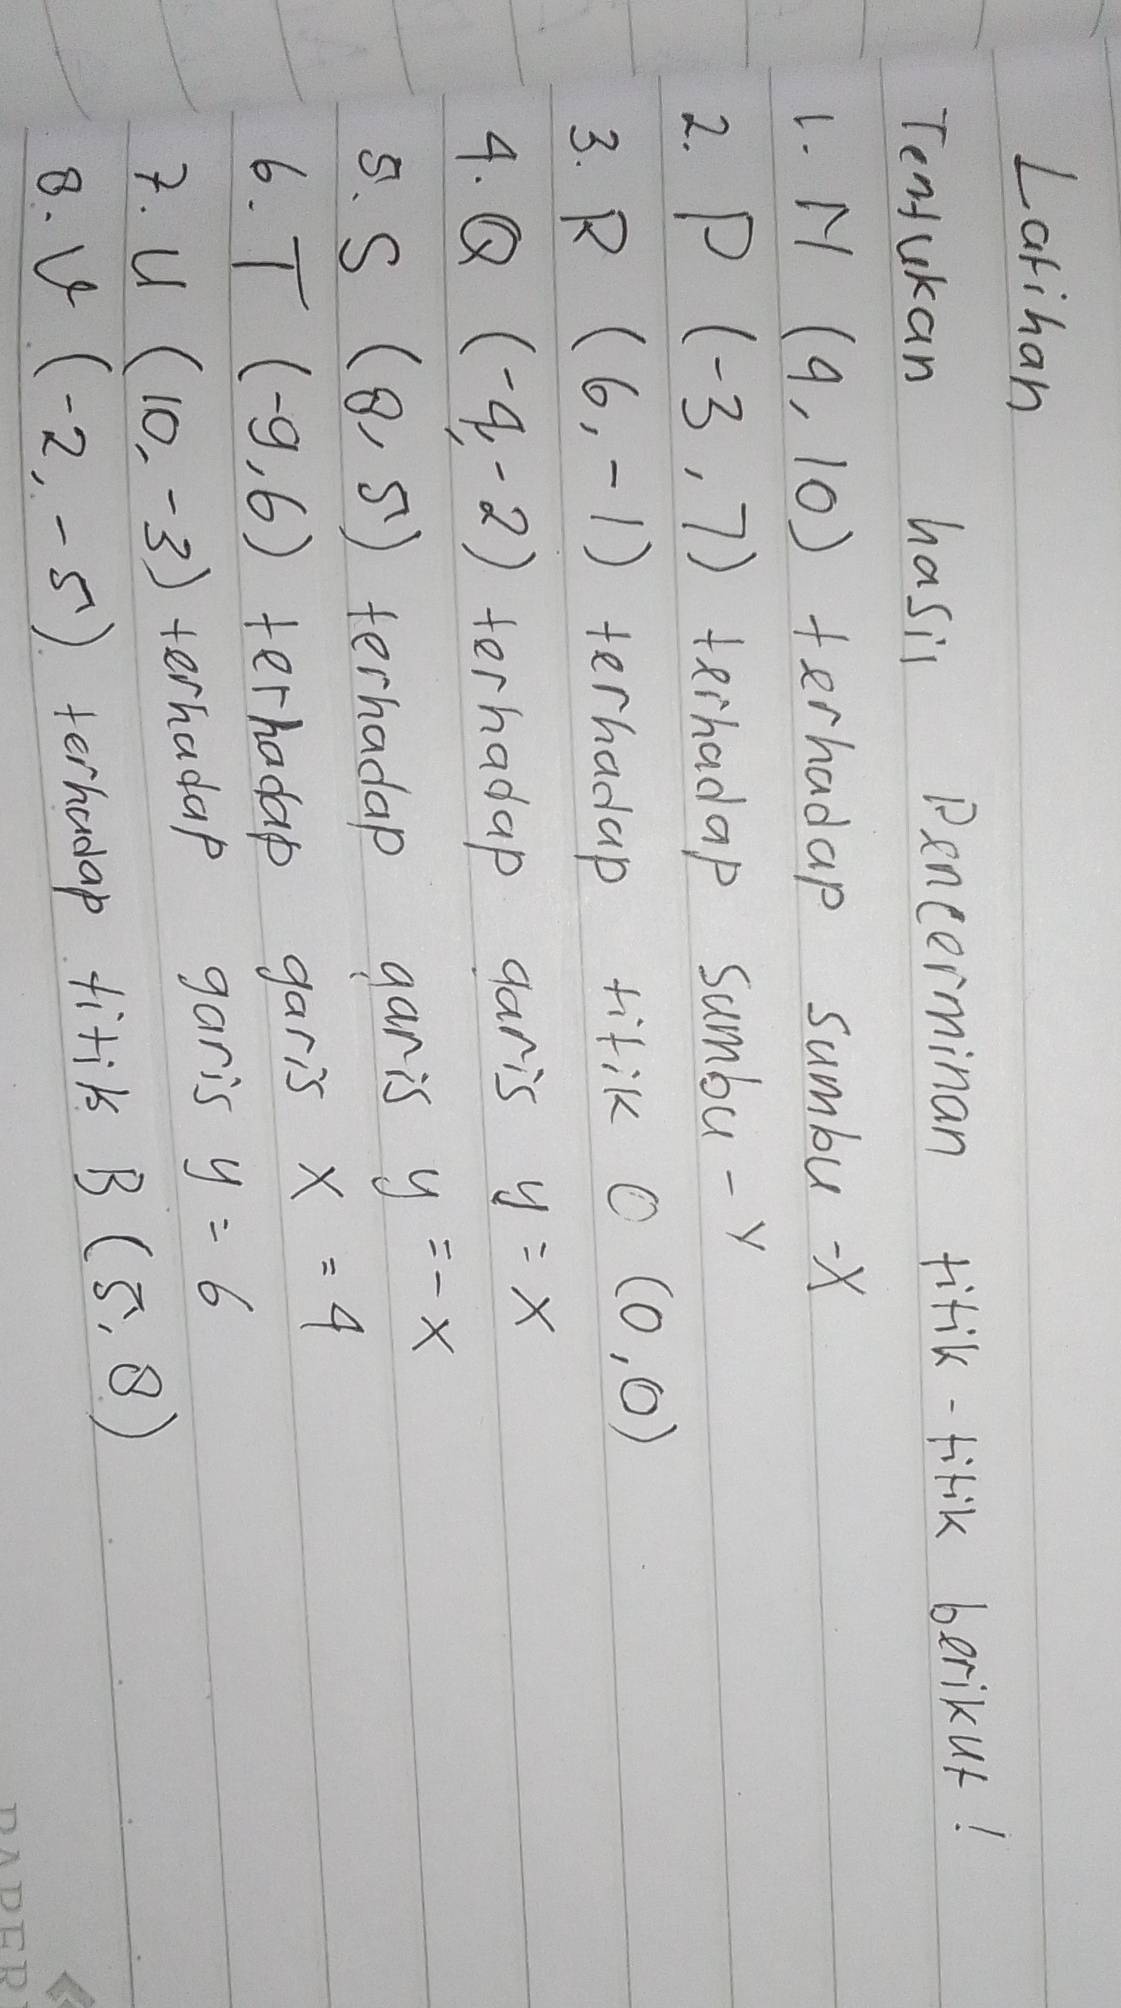 Latihan
Tentukan hasil Pencerminan titik - titik berikut !
1. N (4, 10) terhadap sumbu -X
2. P (-3, 7) terhadap sumbu - Y
3. R (6, -1) terhadap titik O (0,0)
4. Q (-4, -2) terhadap garis y = x
5. S (8, 5) terhadap garis y = - x
6. T (-9, 6) terhadap garis x = 4
7. U (10, -3) terhadap garis y = 6
8. V (-2, -5) terhadap titik B (5, 8)
PAPER